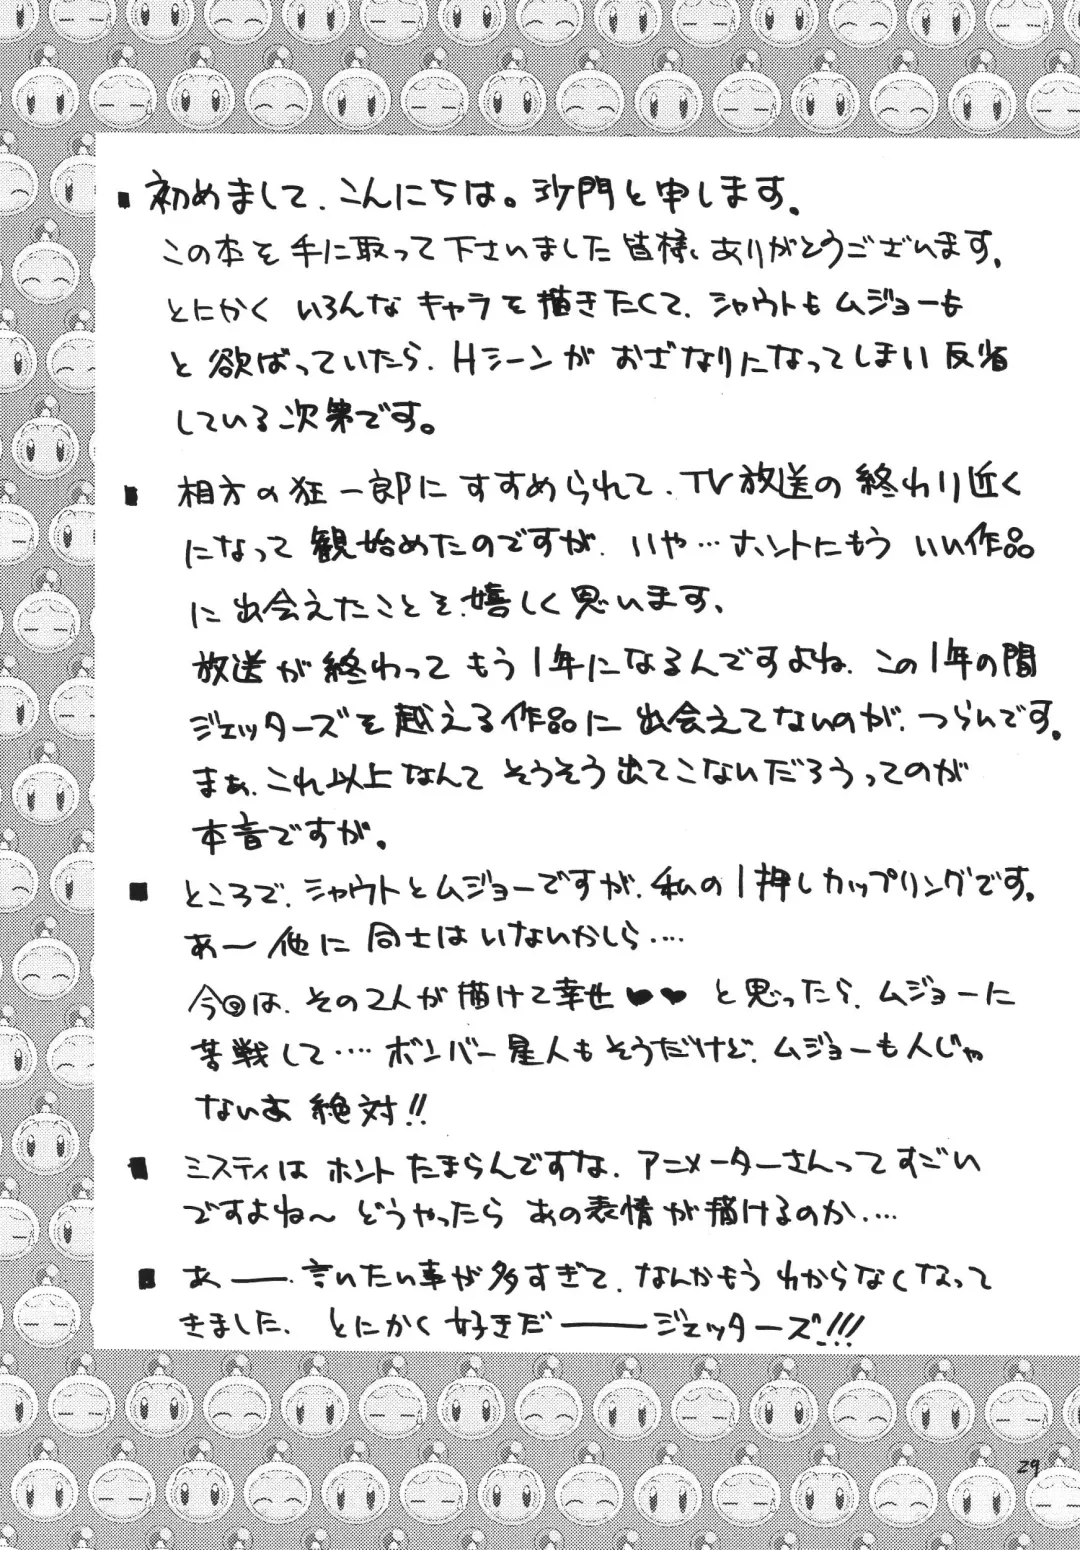 ■ 初めまして、こんにちは。沙門と申します。
この本を手に取って下さいました皆様、ありがとうございます。
とにかくいろんなキャラを描きたくて、シャウトもムジョーも
と欲ばっていたら、Hシーンがおざなりになってしまい反省
している次第です。
■ 相方の狂一郎にすすめられて、TV放送の終わり近く
になって観始めたのですが、いや…ホントにもういい作品
に出会えたことを、嬉しく思います。
放送が終わってもう1年になるんですよね、この1年の間
ジェッターズを越える作品に出会えてないのが、つらいんです。
まぁ、これ以上なんてそうそう出てこないだろうってのが
本音ですが。
■ ところで、シャウトとムジョーですが、私の1押しカップリングです。
あ〜他に同士はいないかしら….
今回は、その2人が描けて幸せ♥♥と思ったら、ムジョーに
苦戦して….ボンバー星人もそうだけど、ムジョーも人じゃ
ないよ絶対!!
■ ミスティはホントたまらんですな、アニメーターさんってすごい
ですよね〜どうやったらあの表情が描けるのか….
■ あ――、言いたい事が多すぎて、なんかもうわからなくなって
きました、とにかく好きだ――ジェッターズ!!!
29